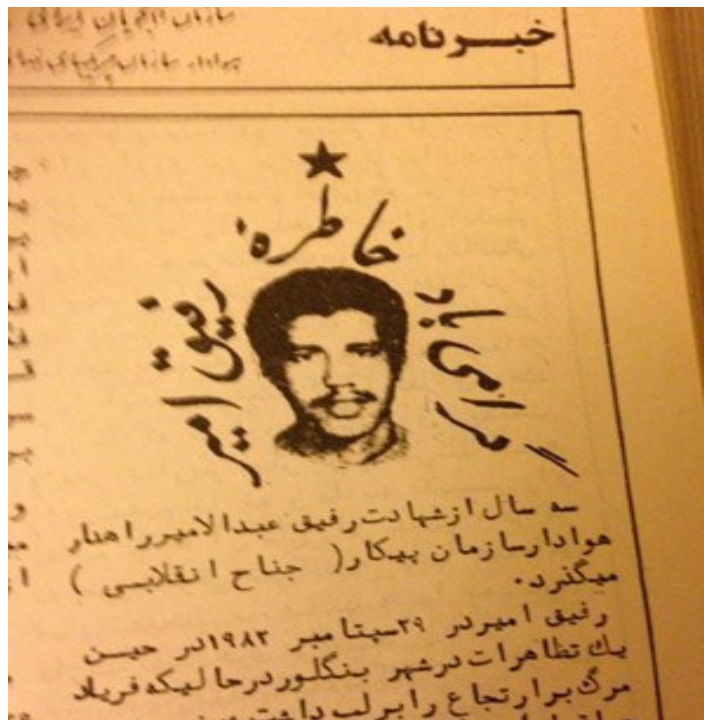 خبرنامه
گرامی باد
خاطرهٔ
رفیق امیر
سه سال از شهادت رفیق عبدالامیر راهدار
هوادار سازمان پیکار( جناح انقلابی )
میگذرد.
رفیق امیر در ۲۹ سپتامبر ۱۹۸۲ در حین
یك تظاهرات در شهر بنگلور در حالیکه فریاد
مرگ بر ارتجاع را بر لب داشت